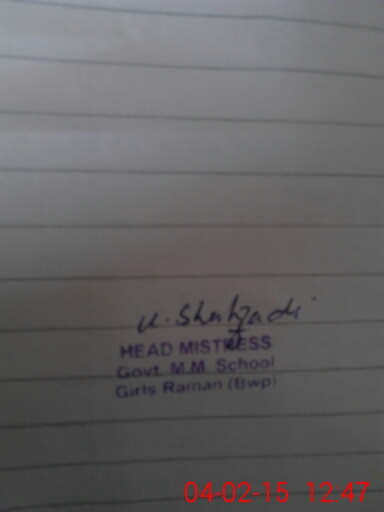 u. Shahzadi
HEAD MISTRESS
Govt. M.M. School
Girls Raman (Bwp)
04-02-15 12:47